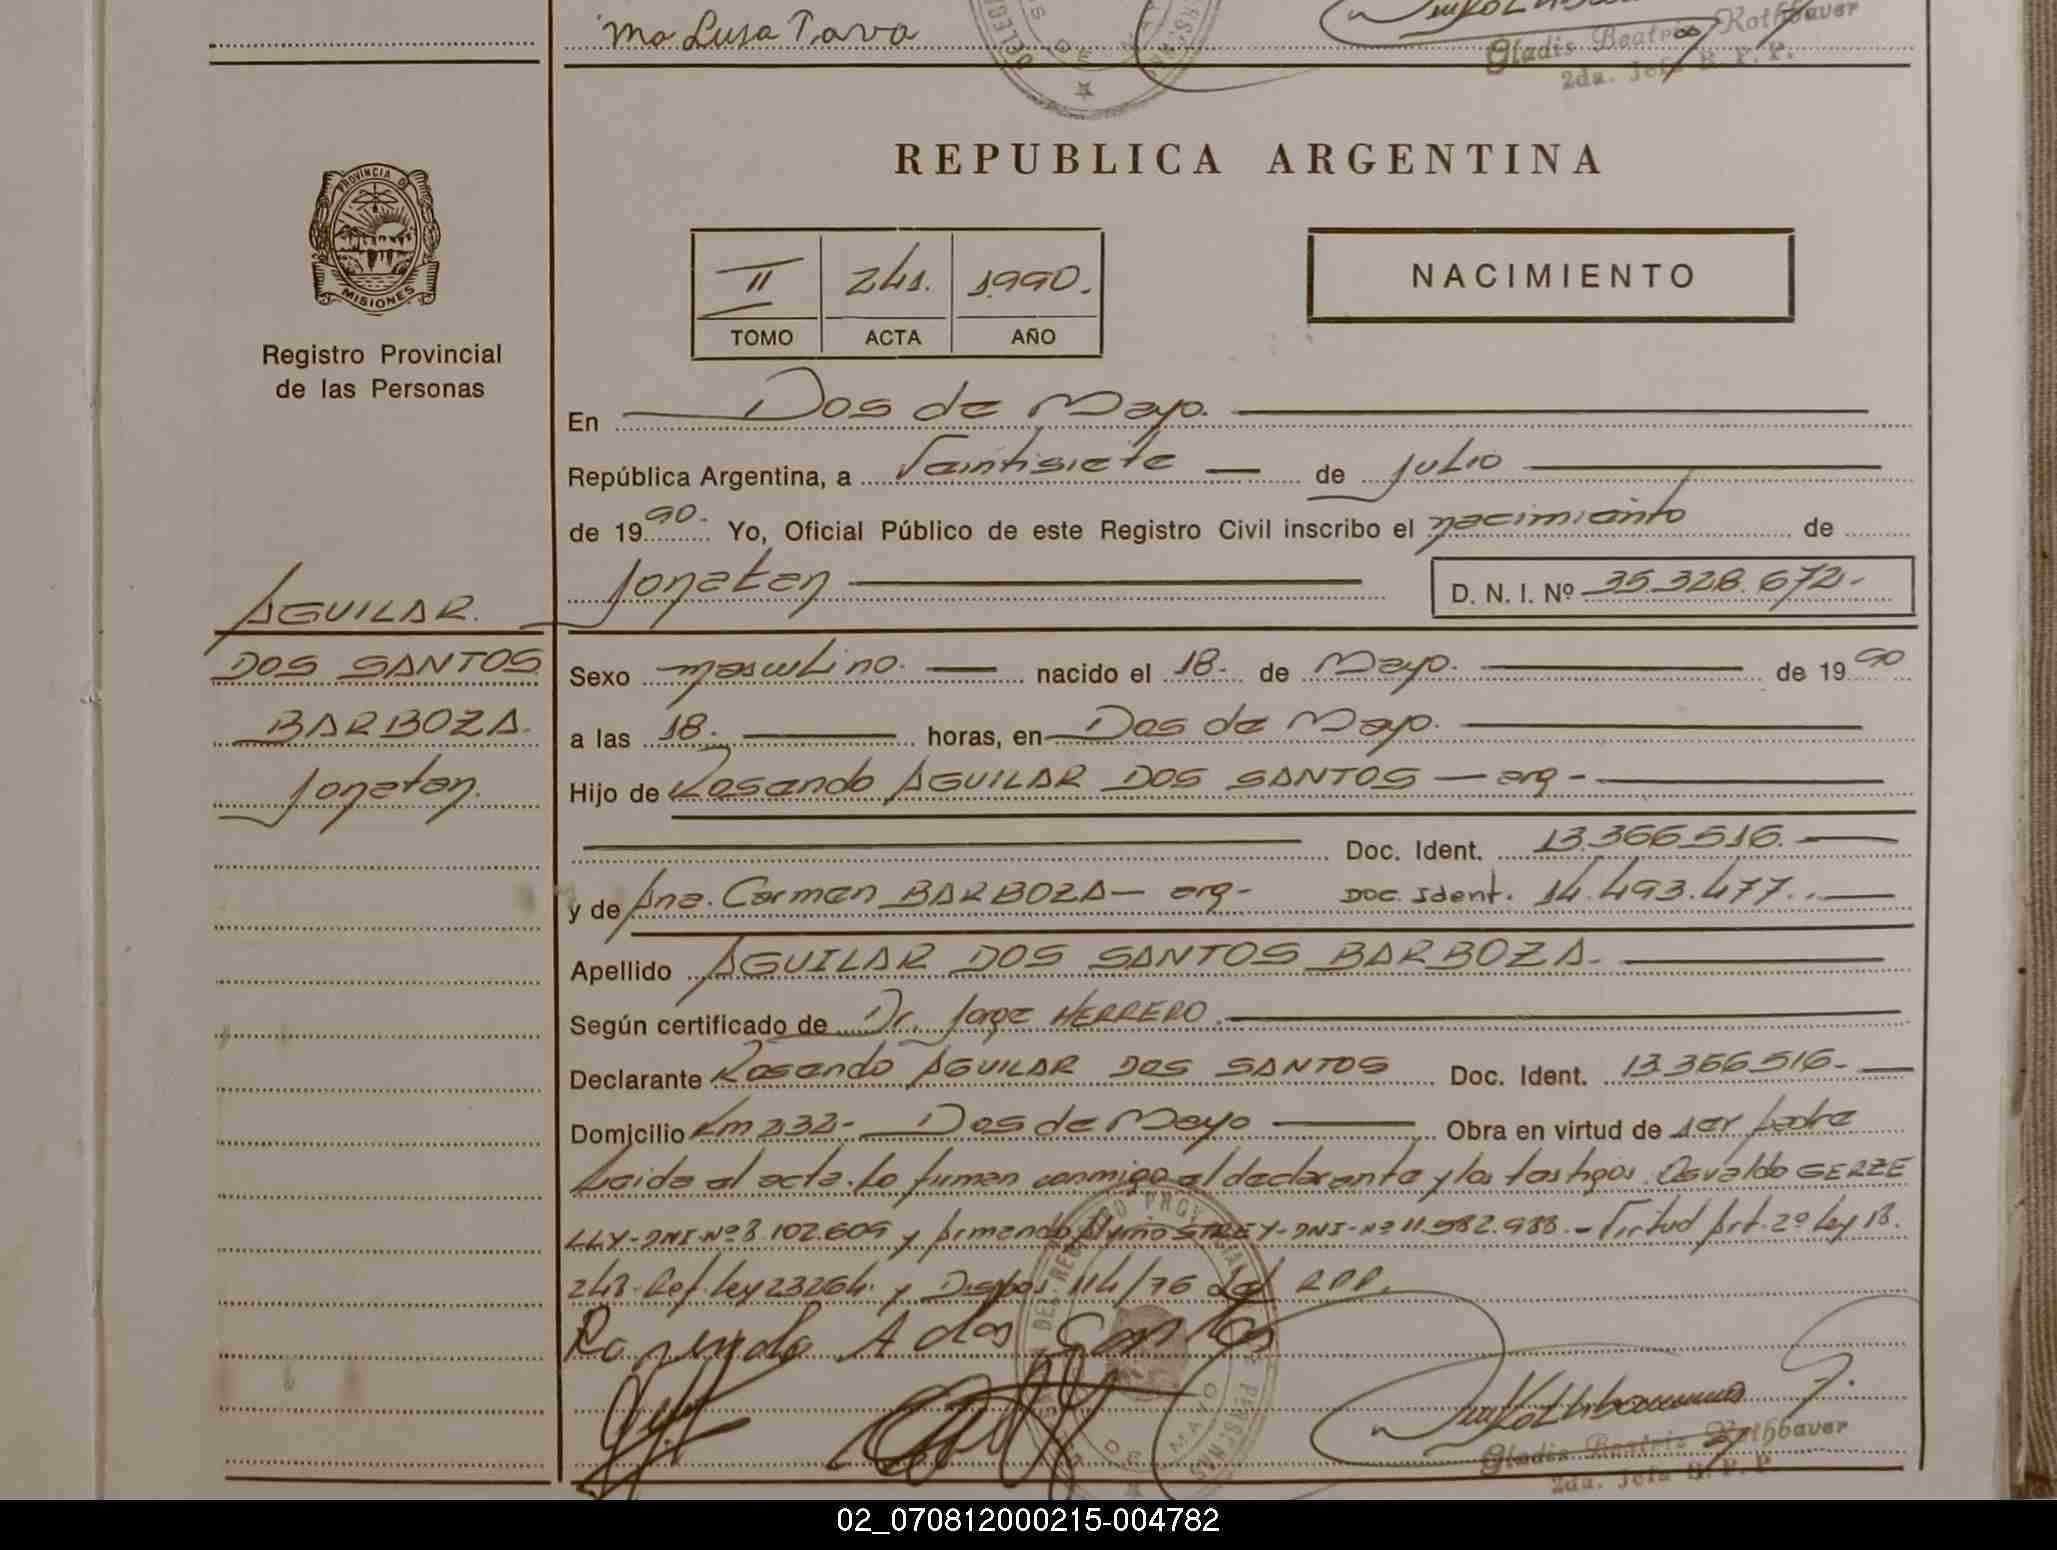 Ma Luisa Tava
Gladis Beatriz Rothbauer
2da. Jefa R. P. P.
PROVINCIA DE
MISIONES
Registro Provincial
de las Personas
REPUBLICA ARGENTINA
II 241. 1990.
TOMO ACTA AÑO
NACIMIENTO
En Dos de Mayo.
República Argentina, a Veintisiete de julio
de 1990. Yo, Oficial Público de este Registro Civil inscribo el nacimiento de
Jonatan D. N. I. Nº 35.328.672.-
AGUILAR
DOS SANTOS
BARBOZA.
Jonatan.
Sexo masculino. nacido el 18. de Mayo. de 1990
a las 18. horas, en Dos de Mayo.
Hijo de Rosendo AGUILAR DOS SANTOS - arg-
Doc. Ident. 13.366.516.
y de Ana Carmen BARBOZA - arg- Doc. Ident. 14.493.477..
Apellido AGUILAR DOS SANTOS BARBOZA.
Según certificado de Dr. Jorge HERRERO.
Declarante Rosendo AGUILAR DOS SANTOS Doc. Ident. 13.366.516.
Domicilio Km 232- Dos de Mayo Obra en virtud de ser padre
Leida el acta. La firman conmigo el declarante y los testigos Osvaldo GERZE
LLY-DNI-Nº 8.102.609 y Armando STREY-DNI-Nº 11.982.988.- Virtud Art. 2º Ley 18.
248-Ref. Ley 23264. y Dispos. 114/76 del RPP.
Rosendo A dos Santos
Gladis Beatriz Rothbauer
2da. Jefa R. P. P.
02_070812000215-004782